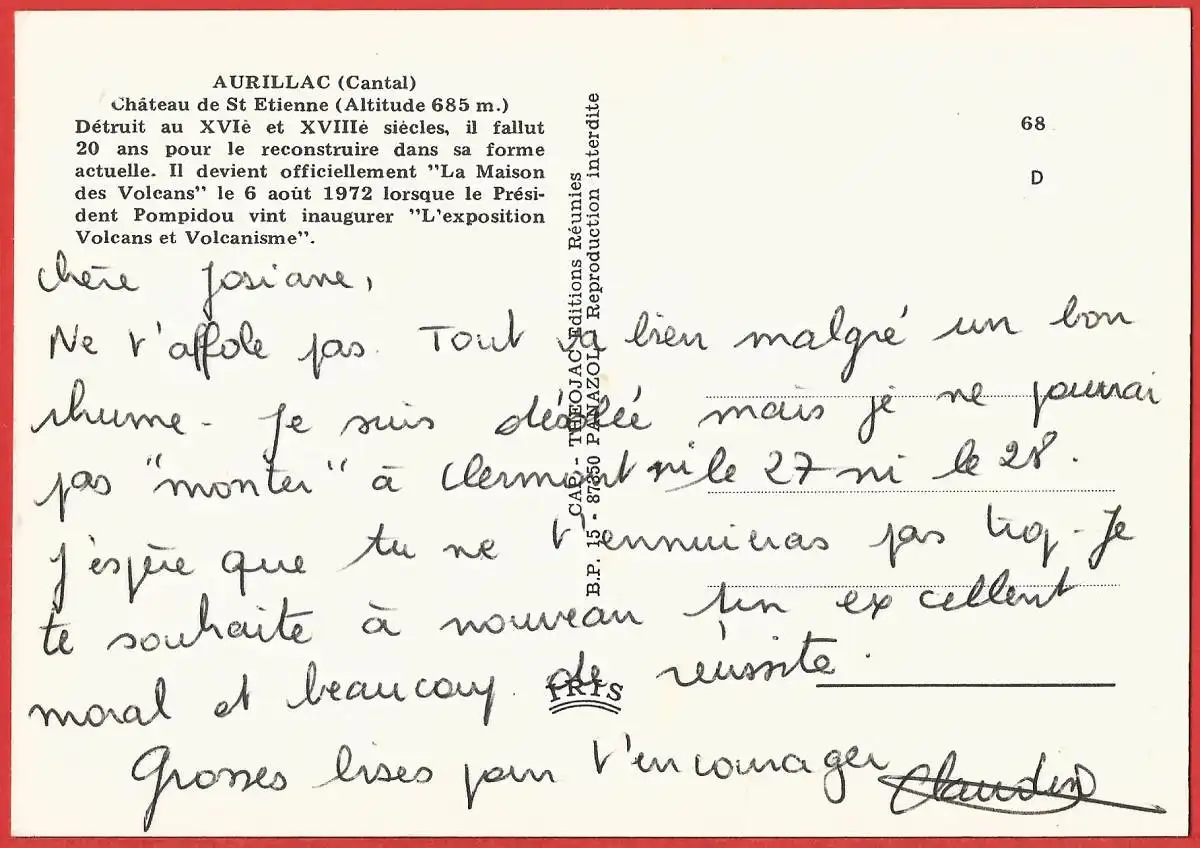 AURILLAC (Cantal)
Château de St Etienne (Altitude 685 m.)
Détruit au XVIè et XVIIIè siècles, il fallut
20 ans pour le reconstruire dans sa forme
actuelle. Il devient officiellement "La Maison
des Volcans" le 6 août 1972 lorsque le Prési-
dent Pompidou vint inaugurer "L'exposition
Volcans et Volcanisme".
68
D
CAP - THEOJAC Editions Réunies
B.P. 15 - 87350 PANAZOL Reproduction interdite
Chère Josiane,
Ne t'affole pas. Tout va bien malgré un bon
rhume - Je suis désolée mais je ne pourrai
pas "monter" à Clermont ni le 27 ni le 28.
J'espère que tu ne t'ennuieras pas trop - Je
te souhaite à nouveau un excellent
moral et beaucoup de réussite.
IRIS
Grosses bises pour t'encourager